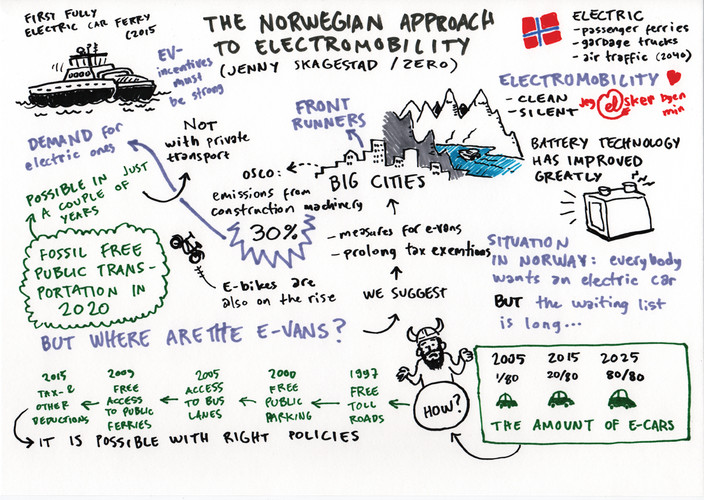 FIRST FULLY
ELECTRIC CAR FERRY
(2015
THE NORWEGIAN APPROACH
TO ELECTROMOBILITY
(JENNY SKAGESTAD / ZERO)
ELECTRIC
- passenger ferries
- garbage trucks
- air traffic (2040)
EV-
incentives
must
be strong
ELECTROMOBILITY
- CLEAN
- SILENT
jeg elsker byen
min
DEMAND for
electric ones
NOT
with private
transport
FRONT
RUNNERS
BIG CITIES
BATTERY TECHNOLOGY
HAS IMPROVED
GREATLY
OSLO:
emissions from
construction machinery
30%
POSSIBLE IN JUST
A COUPLE OF
YEARS
FOSSIL FREE
PUBLIC TRANS-
PORTATION IN
2020
E-bikes are
also on the rise
- measures for e-vans
- prolong tax exemtions
WE SUGGEST
SITUATION
IN NORWAY: everybody
wants an electric car
BUT the waiting list
is long...
BUT WHERE ARE THE E-VANS?
2005 2015 2025
1/80 20/80 80/80
THE AMOUNT OF E-CARS
HOW?
1997
FREE
TOLL
ROADS
2000
FREE
PUBLIC
PARKING
2005
ACCESS
TO BUS
LANES
2009
FREE
ACCESS
TO PUBLIC
FERRIES
2015
TAX- &
OTHER
DEDUCTIONS
IT IS POSSIBLE WITH RIGHT POLICIES